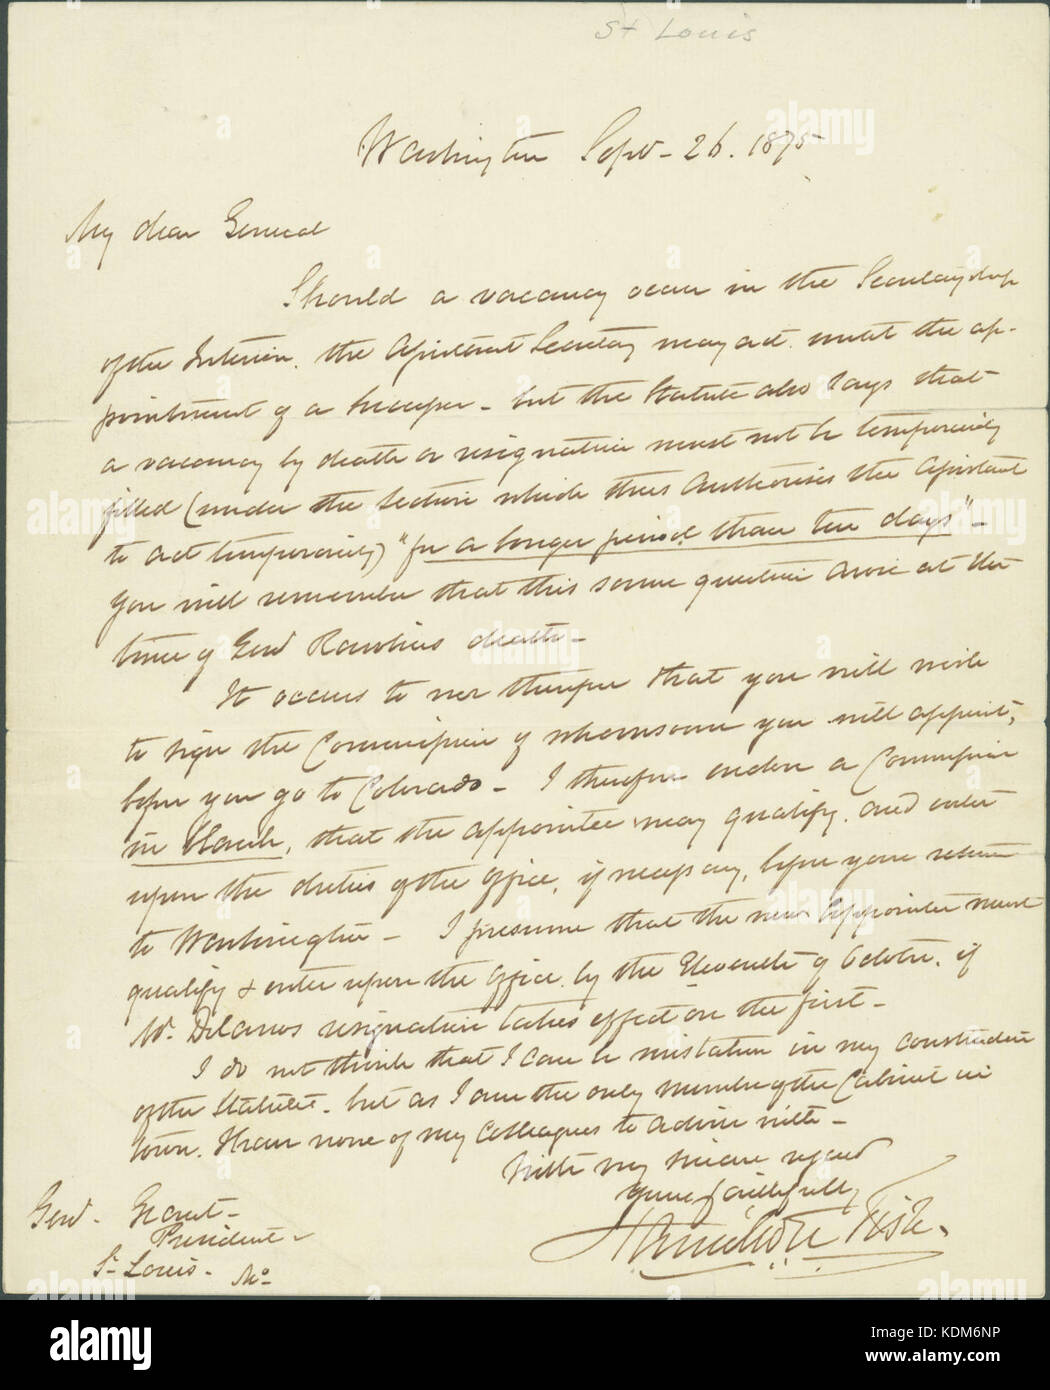 St Louis
Washington Sept - 26. 1875
My dear General
Should a vacancy occur in the Secretaryship
of the Interior, the Assistant Secretary may act until the ap-
pointment of a Successor - but the Statute also says that
a vacancy by death or resignation must not be temporarily
filled (under the Section which thus Authorises the Assistant
to act temporarily) "for a longer period than ten days" -
You will remember that this same question arose at the
time of Genl Rawlins death -
It occurs to me therefore that you will wish
to sign the Commission of whomsoever you will appoint,
before you go to Colorado - I therefore enclose a Commission
in blank, that the appointee may qualify, and enter
upon the duties of the Office, if necessary, before your return
to Washington - I presume that the new Appointee must
qualify & enter upon the Office by the Eleventh of October, if
Mr. Delanos resignation takes effect on the first -
I do not think that I can be mistaken in my construction
of the Statute - but as I am the only member of the Cabinet in
town, I have none of my Colleagues to advise with -
With my sincere regard
Yours faithfully
Hamilton Fish.
Genl - Grant -
President -
St Louis - Mo
alamy
Image ID: KDM6NP
www.alamy.com